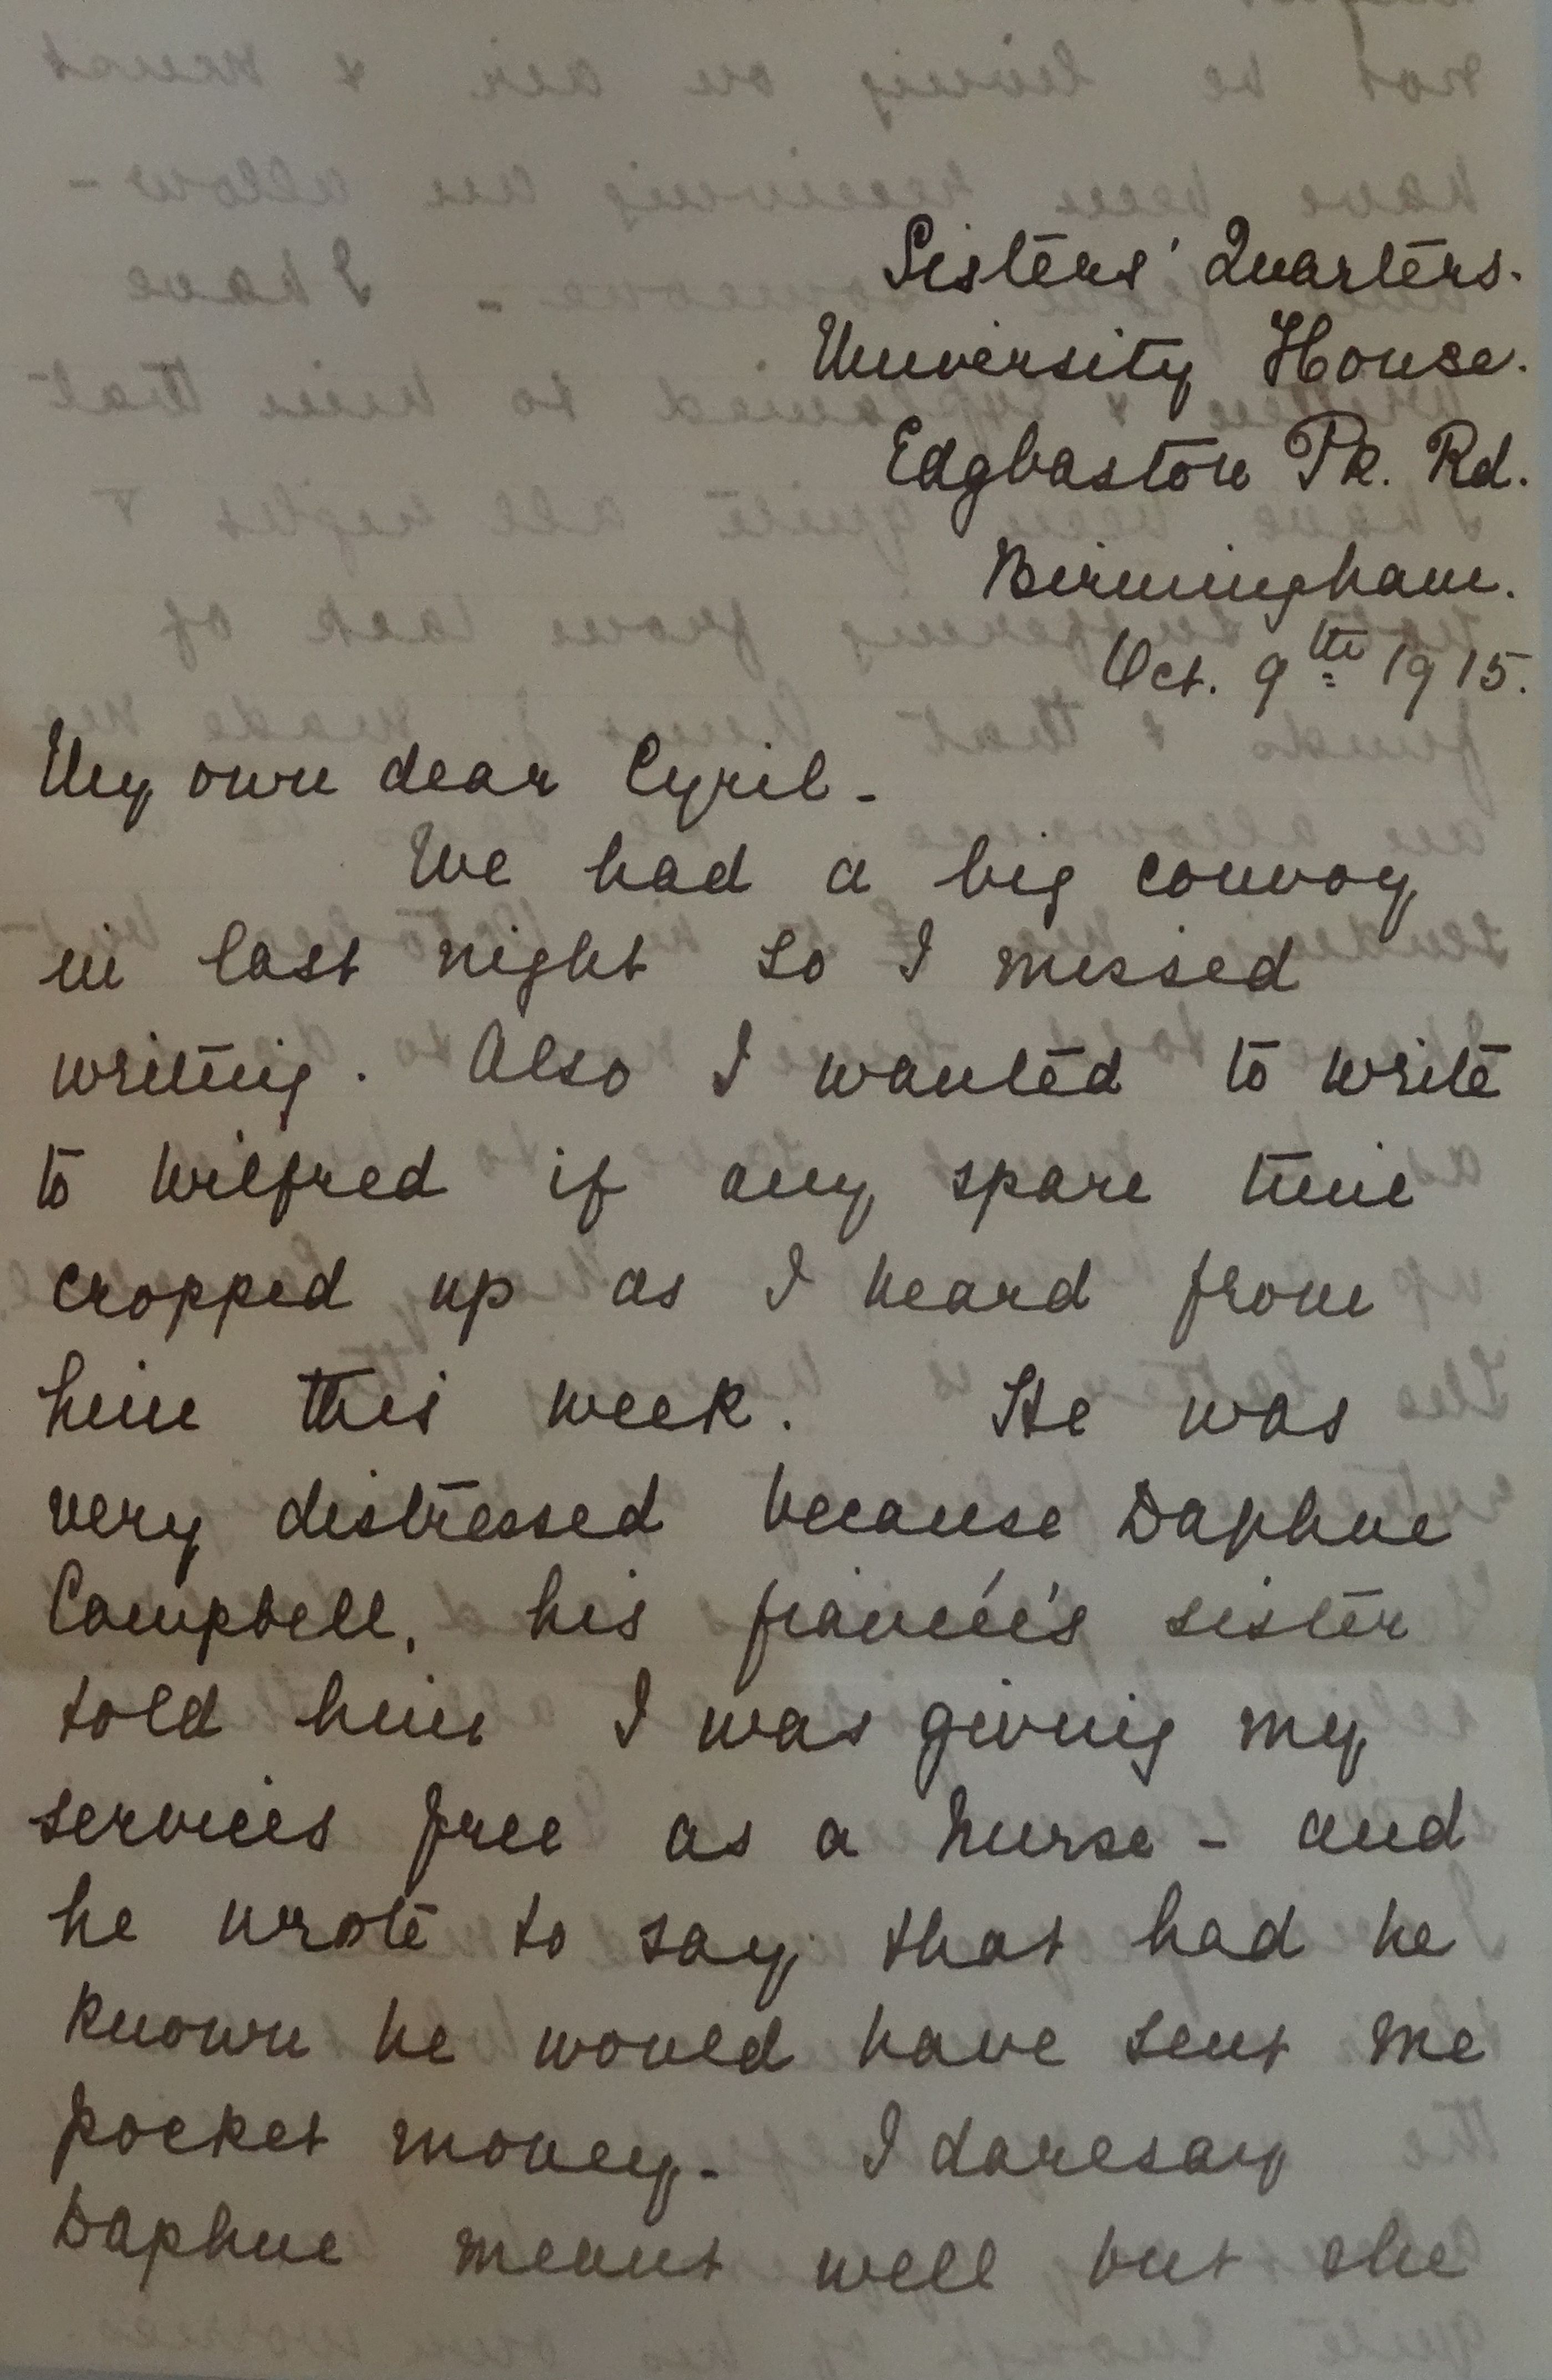 Sisters' Quarters.
University House.
Edgbaston Pk. Rd.
Birmingham.
Oct. 9th 1915.
My own dear Cyril -
We had a big convoy
in last night so I missed
writing. Also I wanted to write
to Wilfred if any spare time
cropped up as I heard from
him this week. He was
very distressed because Daphne
Campbell, his fiancée's sister
told him I was giving my
services free as a nurse - and
he wrote to say that had he
known he would have sent me
pocket money. I daresay
Daphne meant well but she